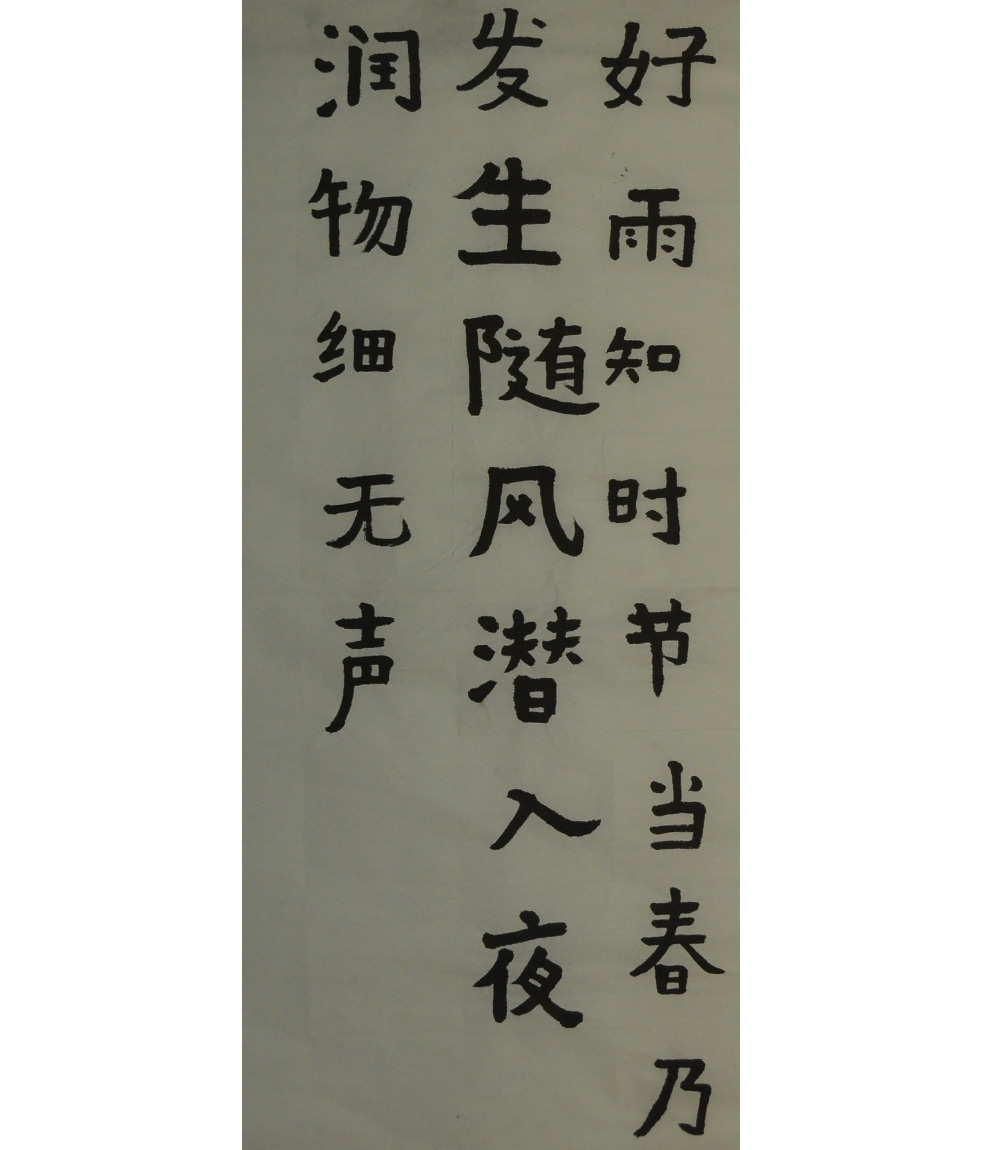 好雨知时节当春乃
发生随风潜入夜
润物细无声